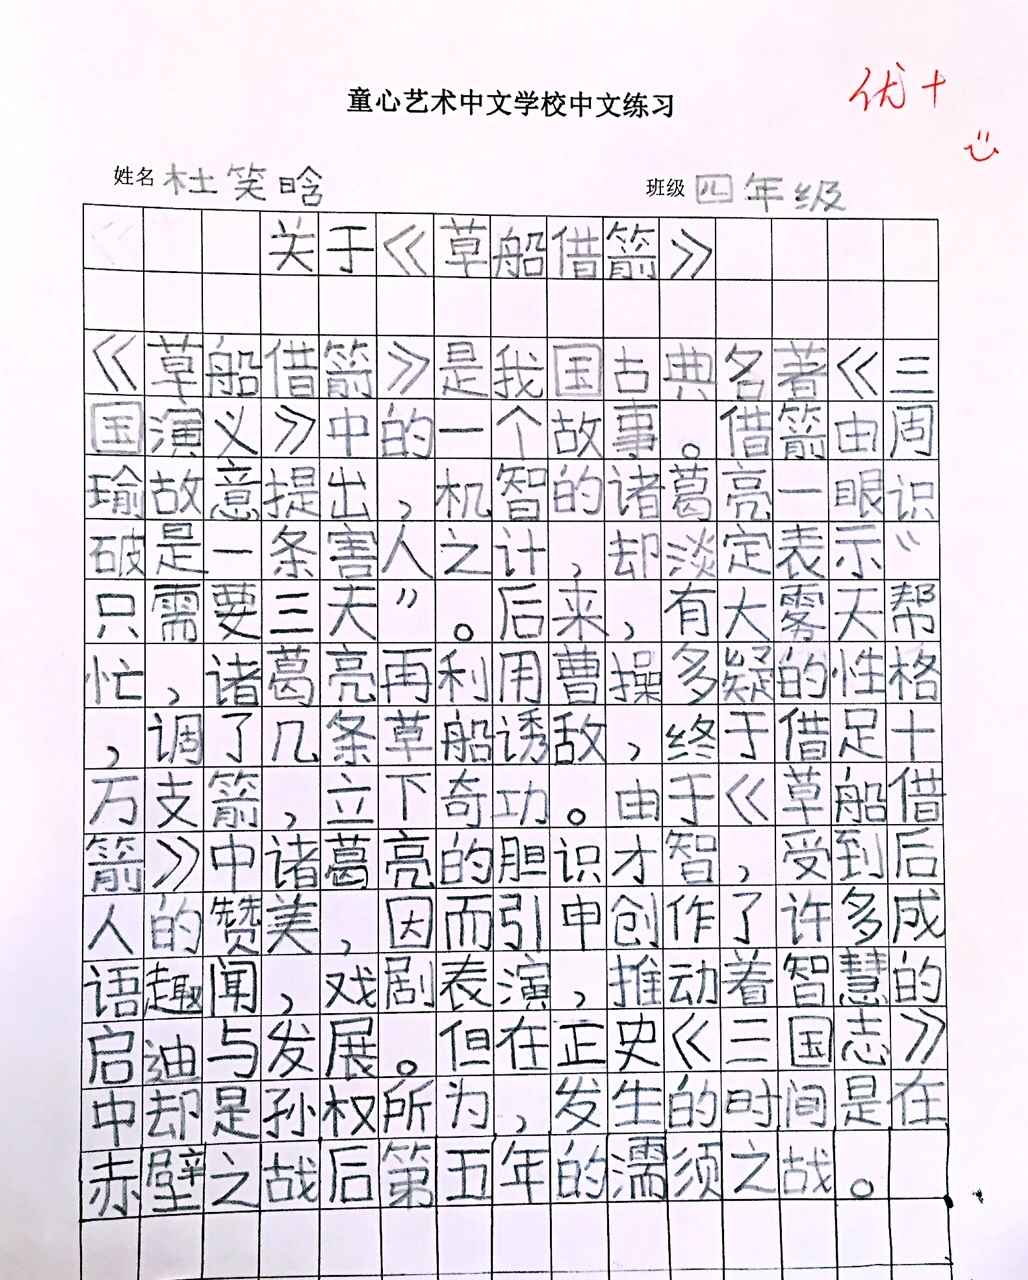 童心艺术中文学校中文练习
优+
姓名 杜笑晗 班级 四年级
关于《草船借箭》
《草船借箭》是我国古典名著《三
国演义》中的一个故事。借箭由周
瑜故意提出，机智的诸葛亮一眼识
破是一条害人之计，却淡定表示“
只需要三天”。后来，有大雾天帮
忙，诸葛亮再利用曹操多疑的性格
，调了几条草船诱敌，终于借足十
万支箭，立下奇功。由于《草船借
箭》中诸葛亮的胆识才智，受到后
人的赞美，因而引申创作了许多成
语趣闻，戏剧表演，推动着智慧的
启迪与发展。但在正史《三国志》
中却是孙权所为，发生的时间是在
赤壁之战后第五年的濡须之战。